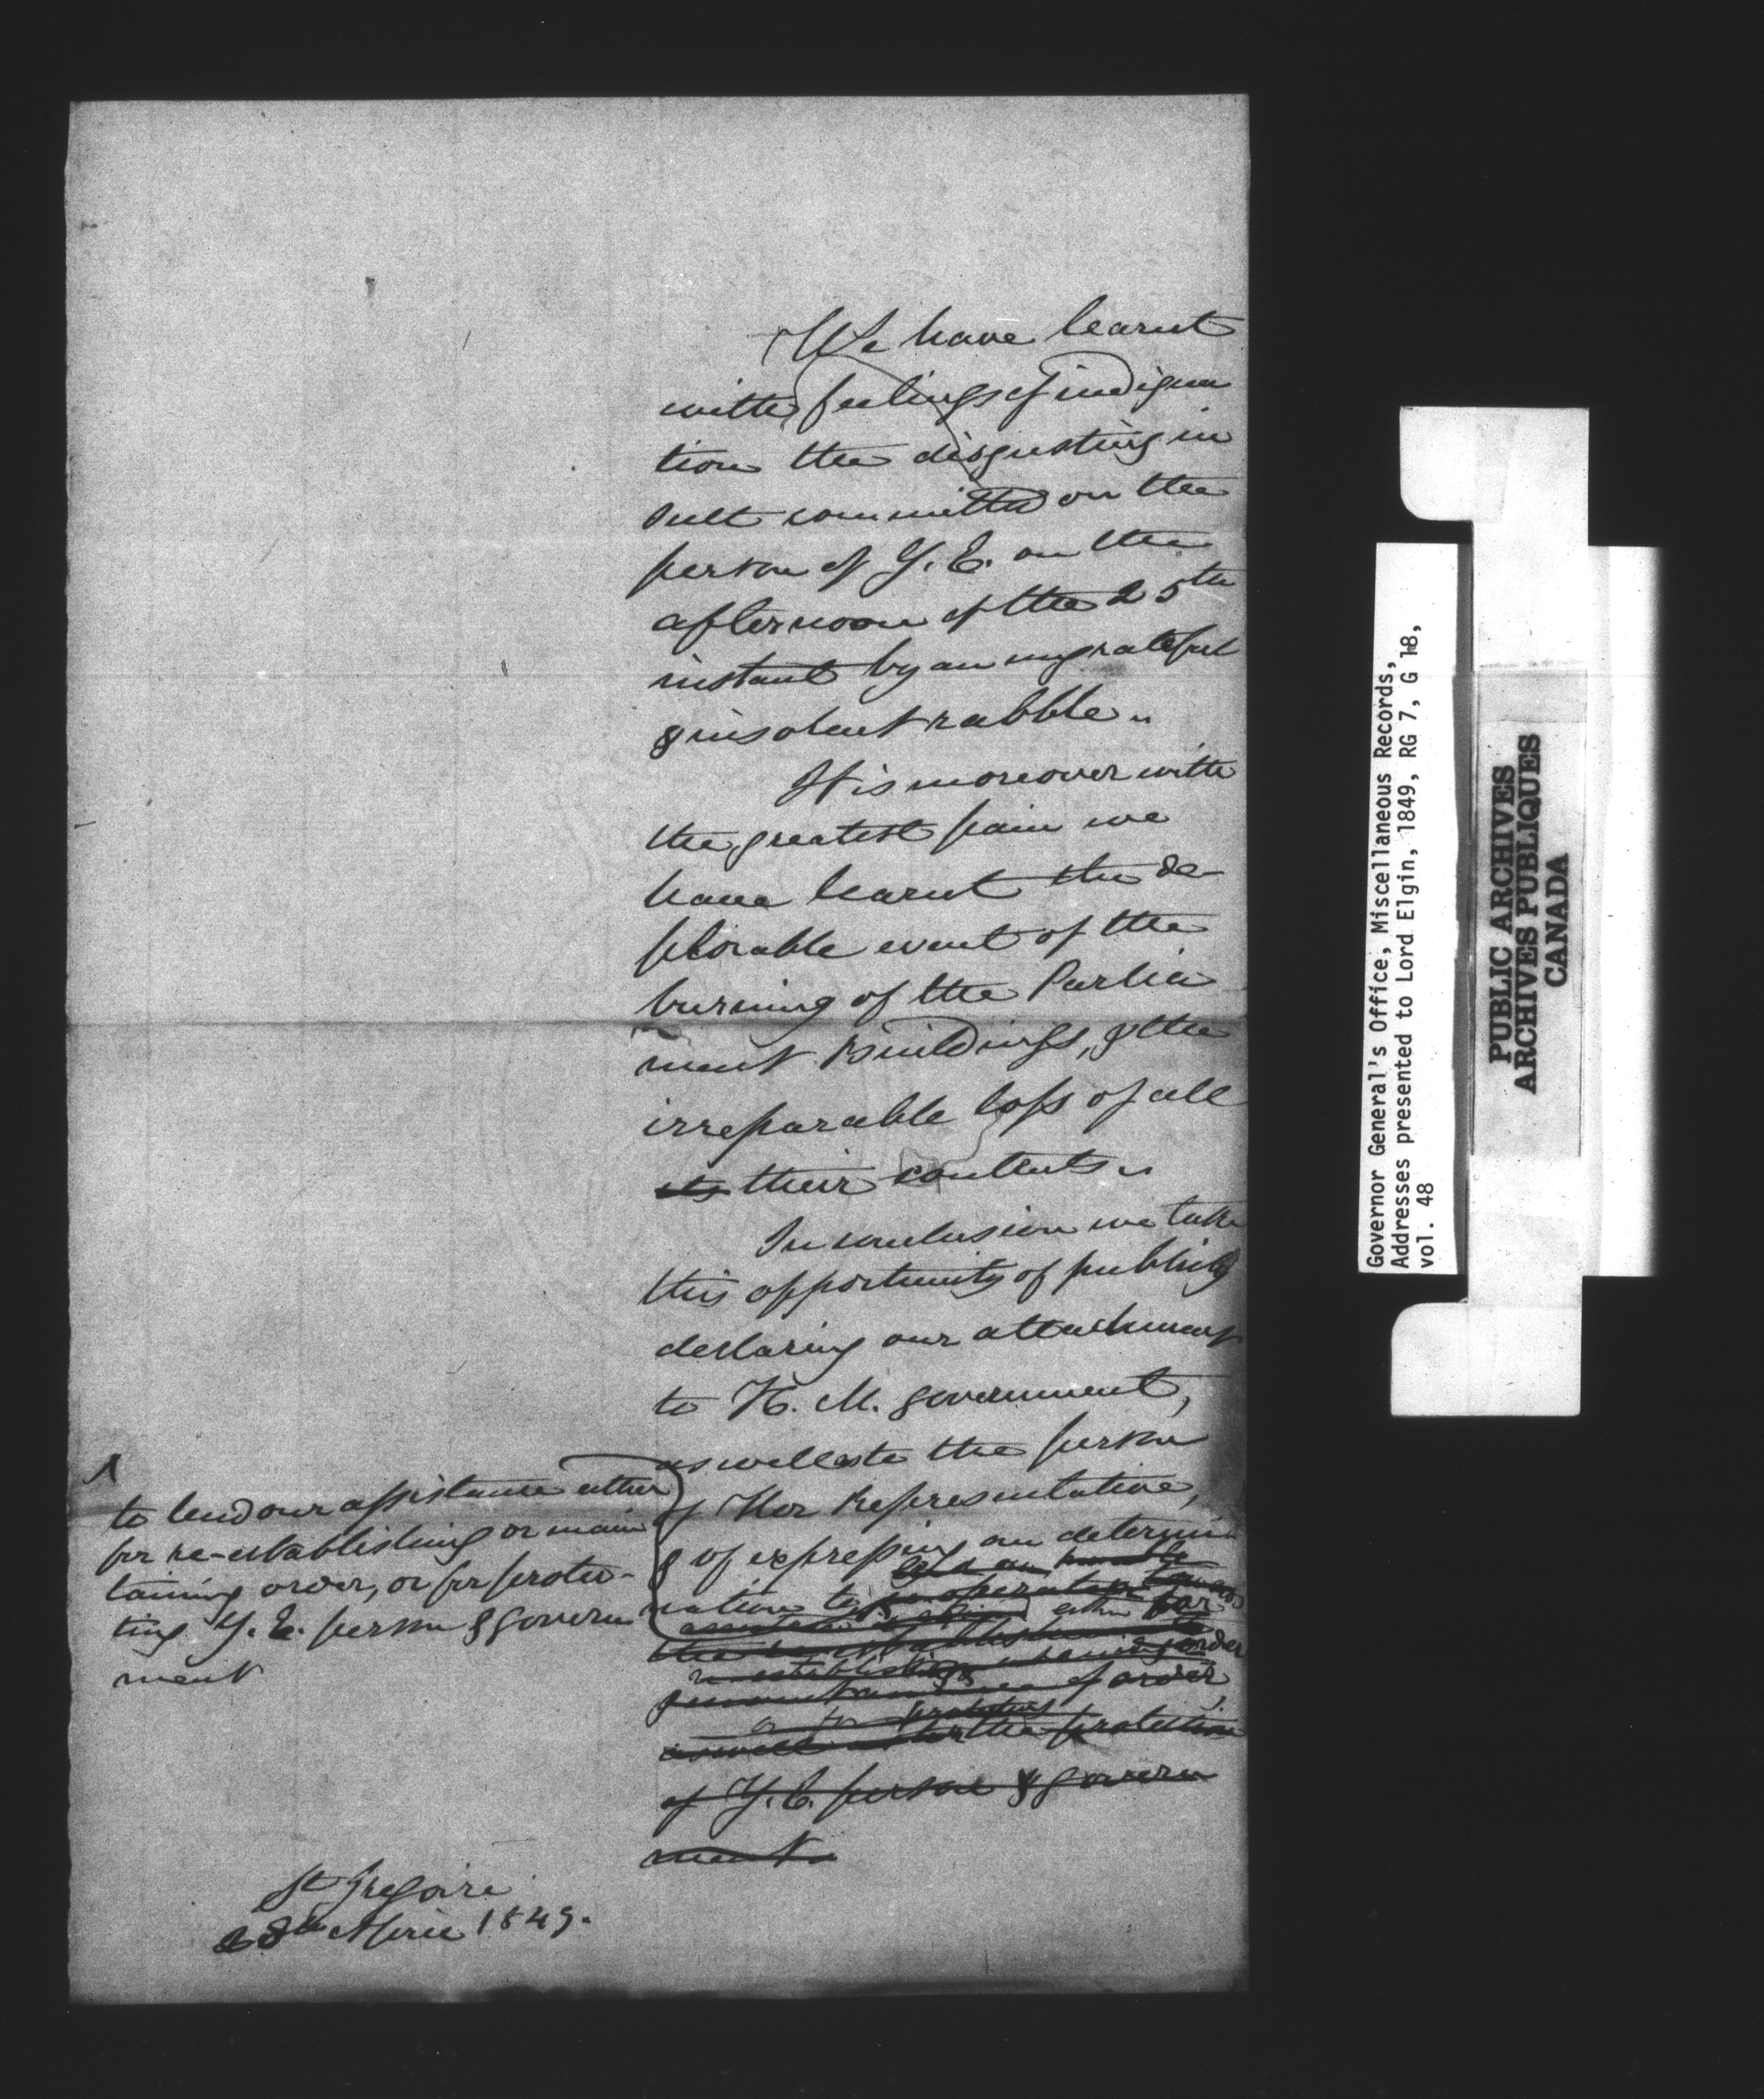 We have learnt
with feelings of indigna
tion the disgusting in
sult committed on the
person of Y. E. on the
afternoon of the 25th
instant by an ungrateful
& insolent rabble..
It is moreover with
the greatest pain we
have learnt the de-
plorable event of the
burning of the Parlia
ment Buildings, & the
irreparable loss of all
its their contents..
In conclusion we take
this opportunity of publicly
declaring our attachment
to H. M. government,
as well as to the person
of Her Representative,
& of expressing our determi-
nation to
either for
of order,
or for protecting
as well as for the protection
of Y. E. person & govern
ment.
to lend our assistance either
for re-establishing or main
taining order, or for protec-
ting Y. E. person & govern
ment
St Gregoire
28th April 1849.
Governor General's Office, Miscellaneous Records,
Addresses presented to Lord Elgin, 1849, RG 7, G 18,
vol. 48
PUBLIC ARCHIVES
ARCHIVES PUBLIQUES
CANADA